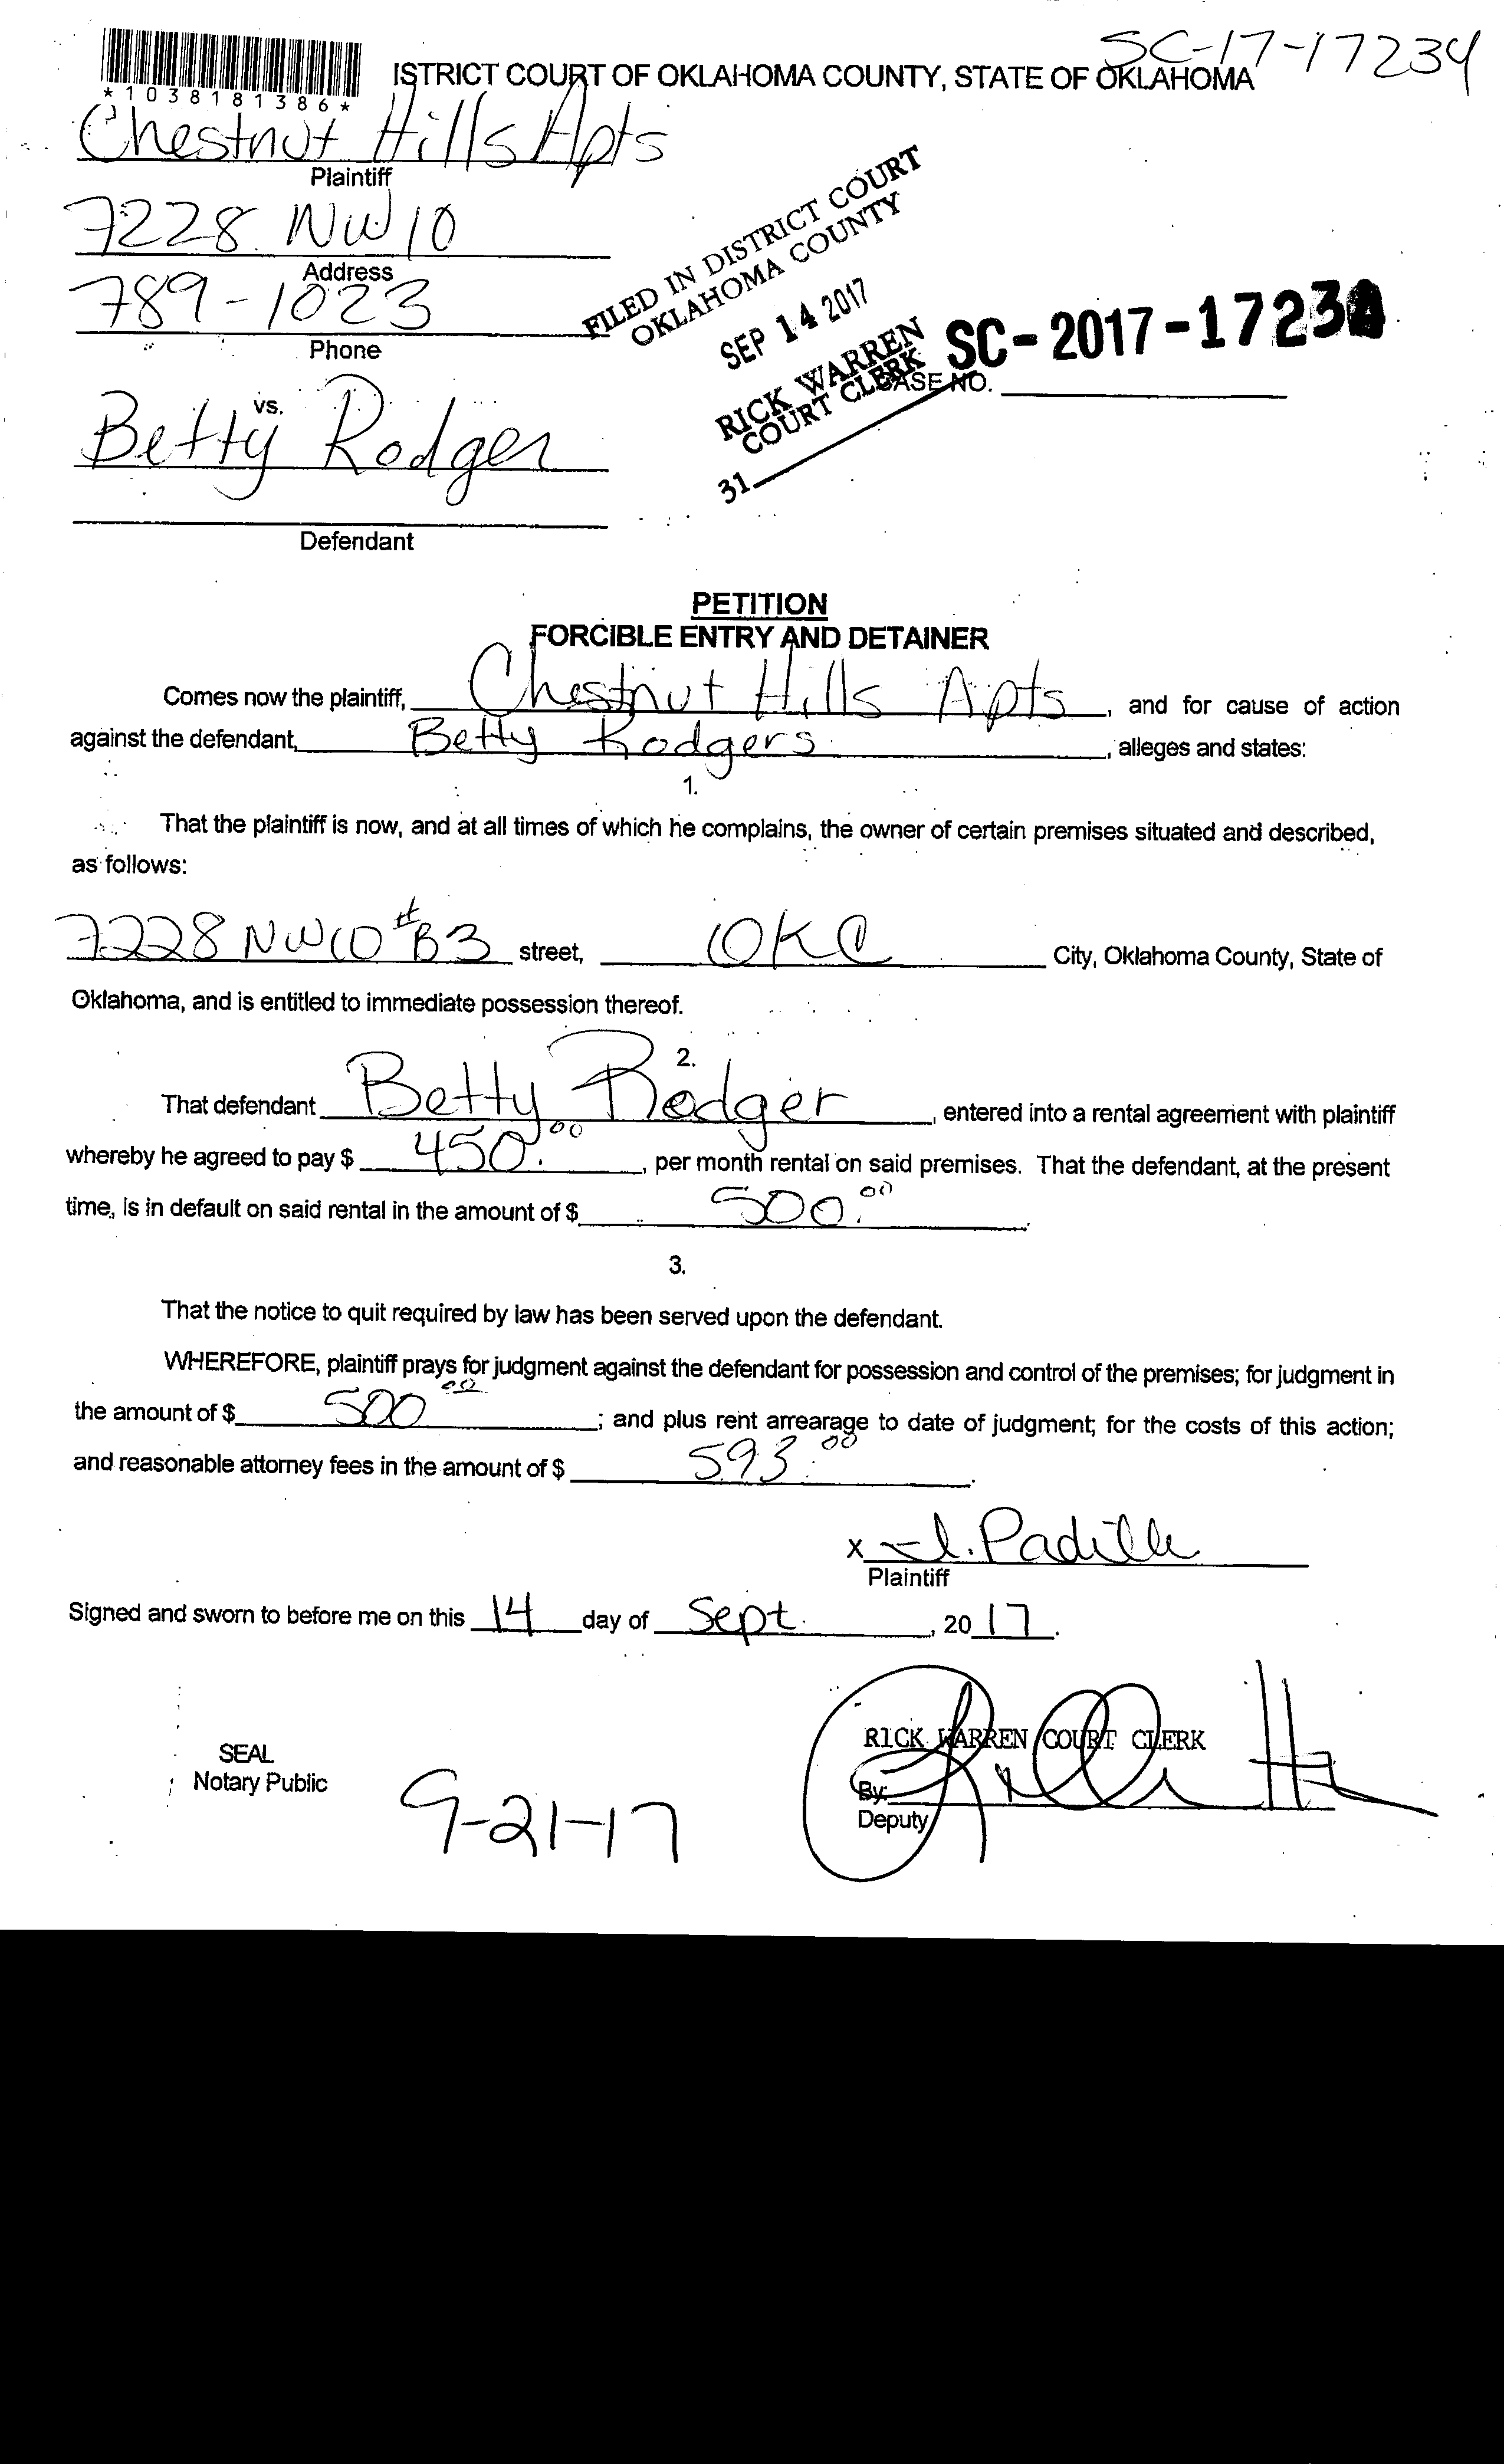 SC-17-17234
ISTRICT COURT OF OKLAHOMA COUNTY, STATE OF OKLAHOMA
*1038181386*
Chestnut Hills Apts
Plaintiff
7228 NW 10
Address
789-1023
Phone
FILED IN DISTRICT COURT
OKLAHOMA COUNTY
SEP 14 2017
RICK WARREN
COURT CLERK
31
SC-2017-17234
CASE NO.
vs.
Betty Rodger
Defendant
PETITION
FORCIBLE ENTRY AND DETAINER
Comes now the plaintiff, Chestnut Hills Apts, and for cause of action
against the defendant, Betty Rodgers, alleges and states:
1.
That the plaintiff is now, and at all times of which he complains, the owner of certain premises situated and described,
as follows:
7228 NW 10 #B3 street, OKC City, Oklahoma County, State of
Oklahoma, and is entitled to immediate possession thereof.
2.
That defendant Betty Rodger, entered into a rental agreement with plaintiff
whereby he agreed to pay $ 450.00, per month rental on said premises. That the defendant, at the present
time, is in default on said rental in the amount of $ 500.00.
3.
That the notice to quit required by law has been served upon the defendant.
WHEREFORE, plaintiff prays for judgment against the defendant for possession and control of the premises; for judgment in
the amount of $ 500 00; and plus rent arrearage to date of judgment; for the costs of this action;
and reasonable attorney fees in the amount of $ 593.00.
x J. Padilla
Plaintiff
Signed and sworn to before me on this 14 day of Sept., 2017.
RICK WARREN COURT CLERK
SEAL
Notary Public
By:
Deputy
9-21-17